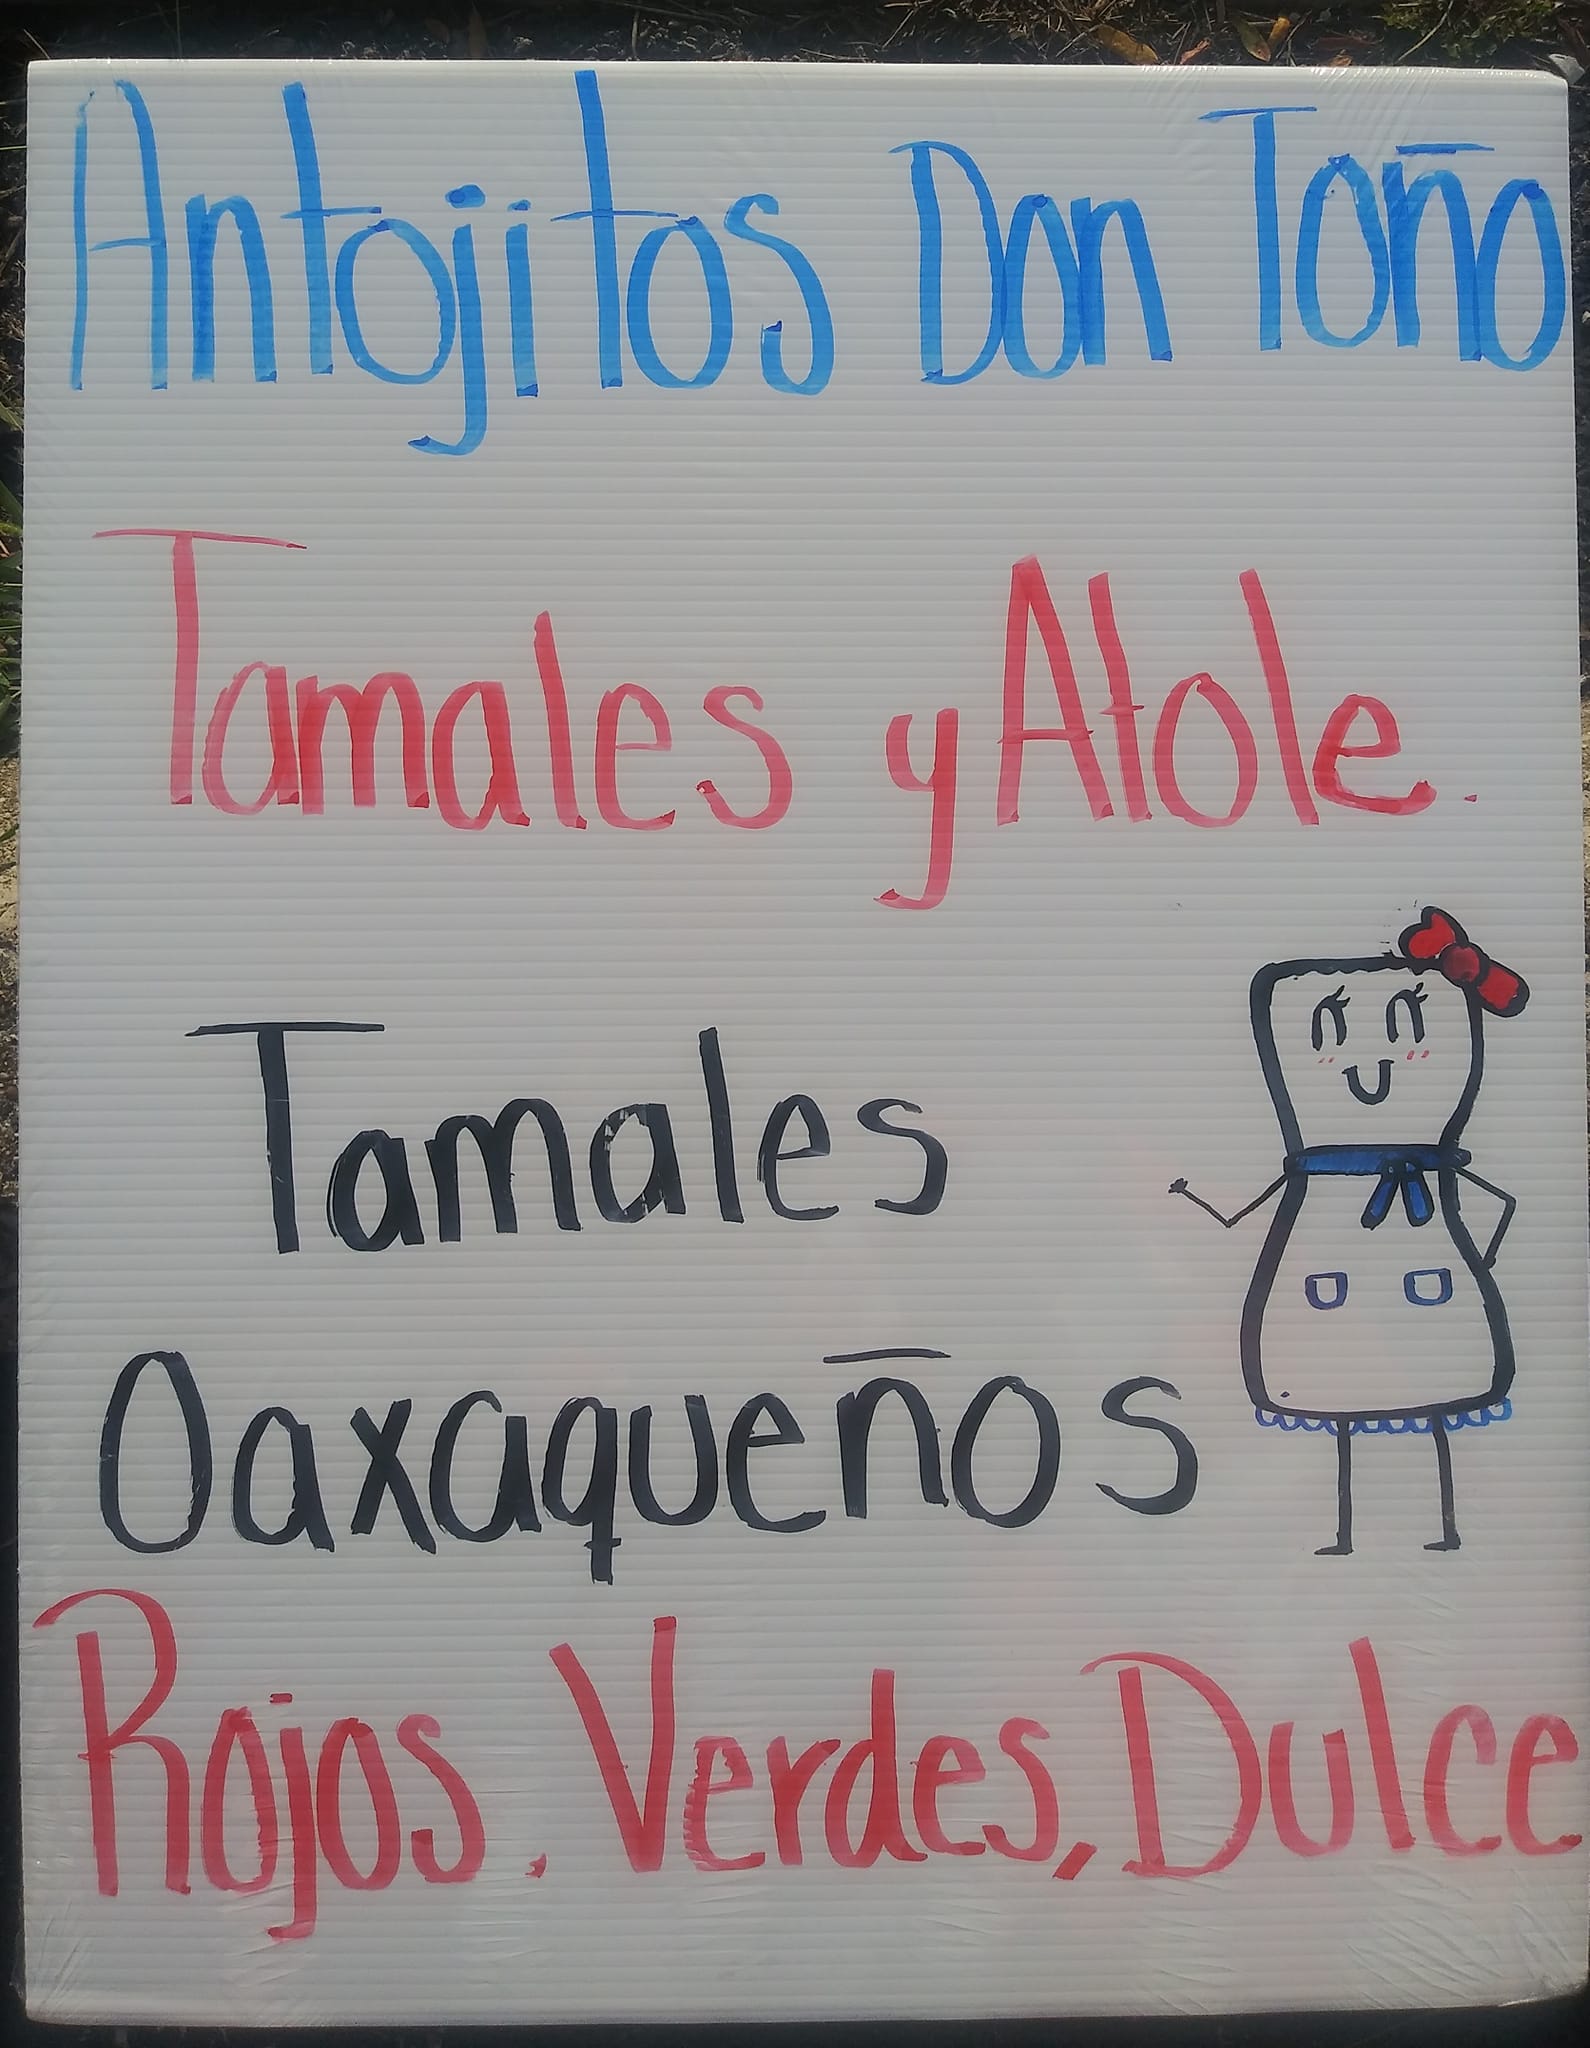 Antojitos Don Toño
Tamales y Atole.
Tamales
Oaxaqueños
Rojos, Verdes, Dulce